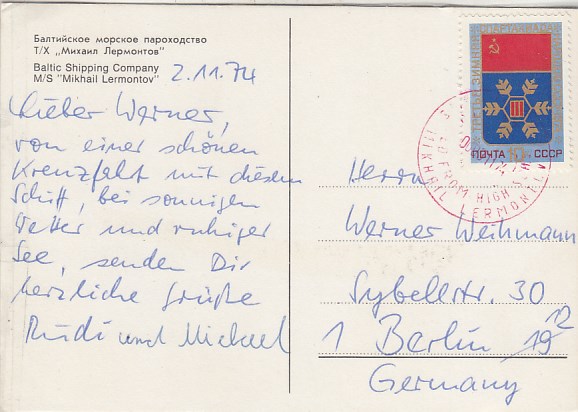 Балтийское морское пароходство
Т/Х „Михаил Лермонтов"
Baltic Shipping Company
M/S "Mikhail Lermontov"
2.11.74
Lieber Werner,
von einer schönen
Kreuzfahrt mit diesem
Schiff, bei sonnigem
Wetter und ruhiger
See, senden Dir
herzliche Grüße
Rudi und Michael
ПОЧТА СССР
FROM HIGH
MIKHAIL LERMONTOV
Herrn
Werner Weihmann
Sybelstr. 30
1 Berlin 19 12
Germany